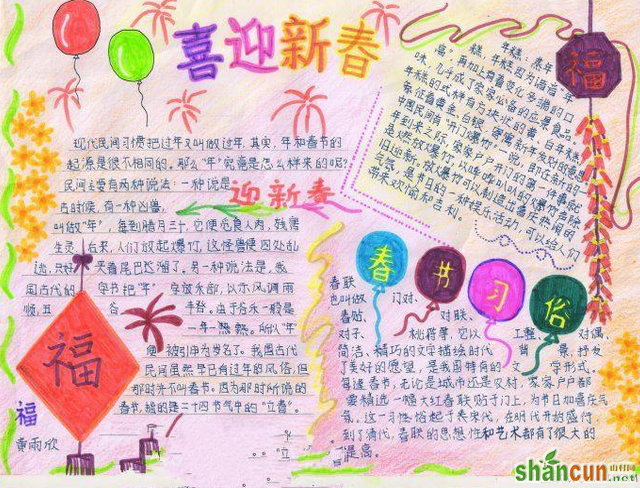 喜迎新春
现代民间习惯把过年又叫做过年.其实,年和春节的
起源是很不相同的。那么"年"究竟是怎么样来的呢?
民间主要有两种说法:一种说是
古时候,有一种凶兽,
叫做"年",每到腊月三十,它便觅食人肉,残害
生灵
后来,人们放起爆竹,这怪兽便四处乱
逃
夹着尾巴逃溜了。另一种说法是,我
国古代的
字书把"年"字放禾部,以示风调雨
顺,五谷
丰登。由于谷禾一般是
一年一熟熟。所以"年"
便被引申为岁名了。我国古代
民间虽然早已有过年的风俗,但
那时并不叫春节。因为那时所说的
春节,指的是二十四节气中的"立春"。
迎新春
福
福
黄雨欣
年糕:蒸年
糕,年糕因为谐音"年
高",再加上有着变化多端的口
味,几乎成了家家必备的应景食品
年糕的式样有方块状的黄、白年糕
象征着黄金、白银,寄寓新年发财的意思
中国民间有"开门爆竹"一说,即在新的一
年到来之际,家家户户开门的第一件事就
是燃放爆竹,以哔哔叭叭的爆竹声除
旧迎新。放爆竹可以创造出喜庆热闹的
气氛,是节日的一种娱乐活动,可以给人们
带来欢愉和吉利。
福
春节习俗
春联
也叫做
门对、
春贴、
对联、
对子、
桃符等,它以
工整、
对偶、
简洁、精巧的文字描绘时代
背景,抒发
了美好的愿望,是我国特有的
文学形式。
每逢春节,无论是城市还是农村,家家户户都
要精选一幅大红春联贴于门上,为节日加喜庆气
氛。这一习俗起于宋代,在明代开始盛行,
到了清代,春联的思想性和艺术都有了很大的
提高。
shancun
山村网
.net